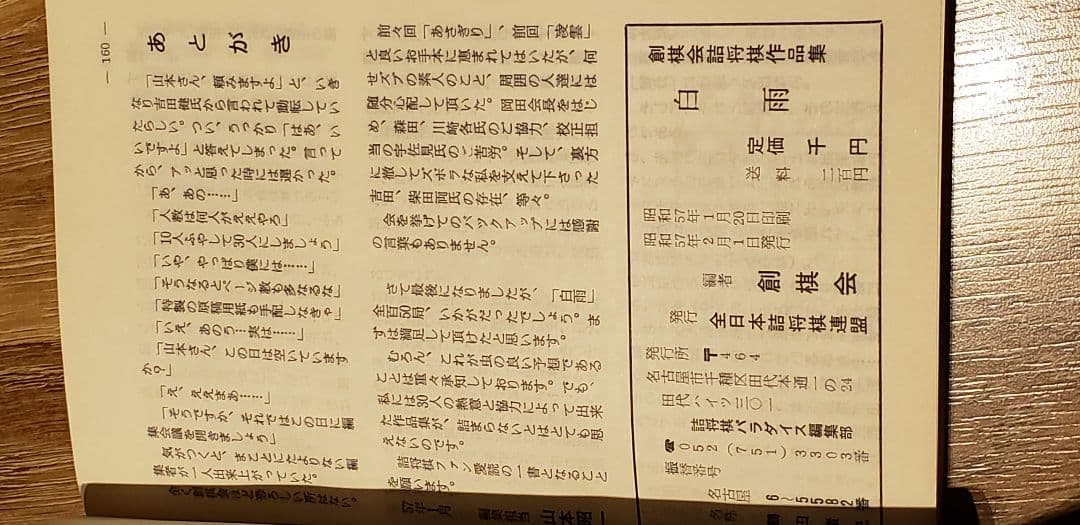 — 160 —
あとがき
「山本さん、頼みますよ」と、いき
なり吉田健氏から言われて動転してい
たらしい。つい、うっかり「はあ、い
いですよ」と答えてしまった。言って
から、アッと思った時には遅かった。
「あ、あの……」
「人数は何人がええやろ」
「10人ふやして30人にしましょう」
「いや、やっぱり僕には……」
「そうなるとページ数も多なるな」
「特製の原稿用紙も手配しなきゃ」
「いえ、あのう…実は……」
「山本さん、この日は空いています
か？」
「え、ええまあ……」
「そうですか、それではこの日に編
集会議を開きましょう」
気がつくと、まことにたよりない編
集者が一人出来上がっていた。
全く創棋会ほど恐ろしい所はない。
前々回「あさぎり」、前回「凌雲」
と良いお手本に恵まれてはいたが、何
せズブの素人のこと、周囲の人達には
随分心配して頂いた。岡田会長をはじ
め、森田、川崎各氏のご協力、校正担
当の宇佐見氏のご苦労。そして、裏方
に徹してズボラな私を支えて下さった
吉田、柴田両氏の存在、等々。
会を挙げてのバックアップには感謝
の言葉もありません。
さて最後になりましたが、「白雨」
全百50局、いかがだったでしょう。ま
ずは満足して頂けたと思います。
むろん、これが虫の良い予想である
ことは重々承知しております。でも、
私には30人の熱意と協力によって出来
た作品集が、詰まらないとはとても思
えないのです。
詰将棋ファン愛読の一書となること
を願います。
57年1月
編集担当 山本昭一
創棋会詰将棋作品集
白雨
定価 千円
送料 二百円
昭和57年1月20日印刷
昭和57年2月1日発行
編者 創棋会
発行 全日本詰将棋連盟
発行所 〒464
名古屋市千種区田代本通一の24
田代ハイツ三〇一
詰将棋パラダイス編集部
☎052(751)3303番
振替番号
名古屋 6〜5582番
名称